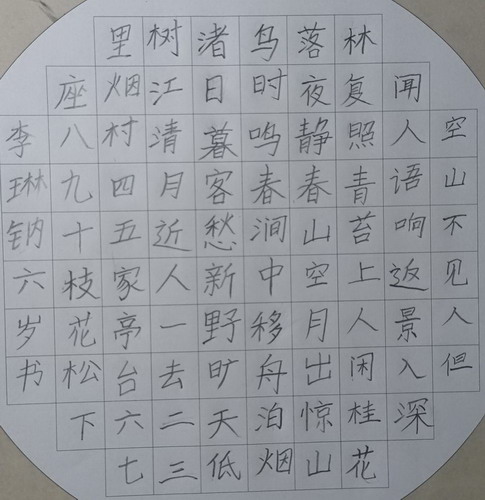 空山不见人但
闻人语响返景入深
林复照青苔上人闲桂花
落夜静春山空月出惊山
鸟时鸣春涧中移舟泊烟
渚日暮客愁新野旷天低
树江清月近人一去二三
里烟村四五家亭台六七
座八九十枝花松下
李琳钠六岁书